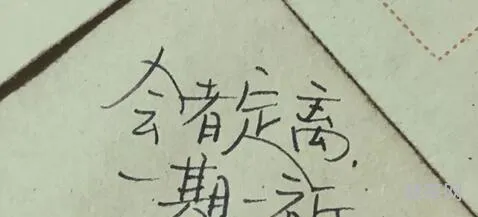 会者定离.
一期一祈